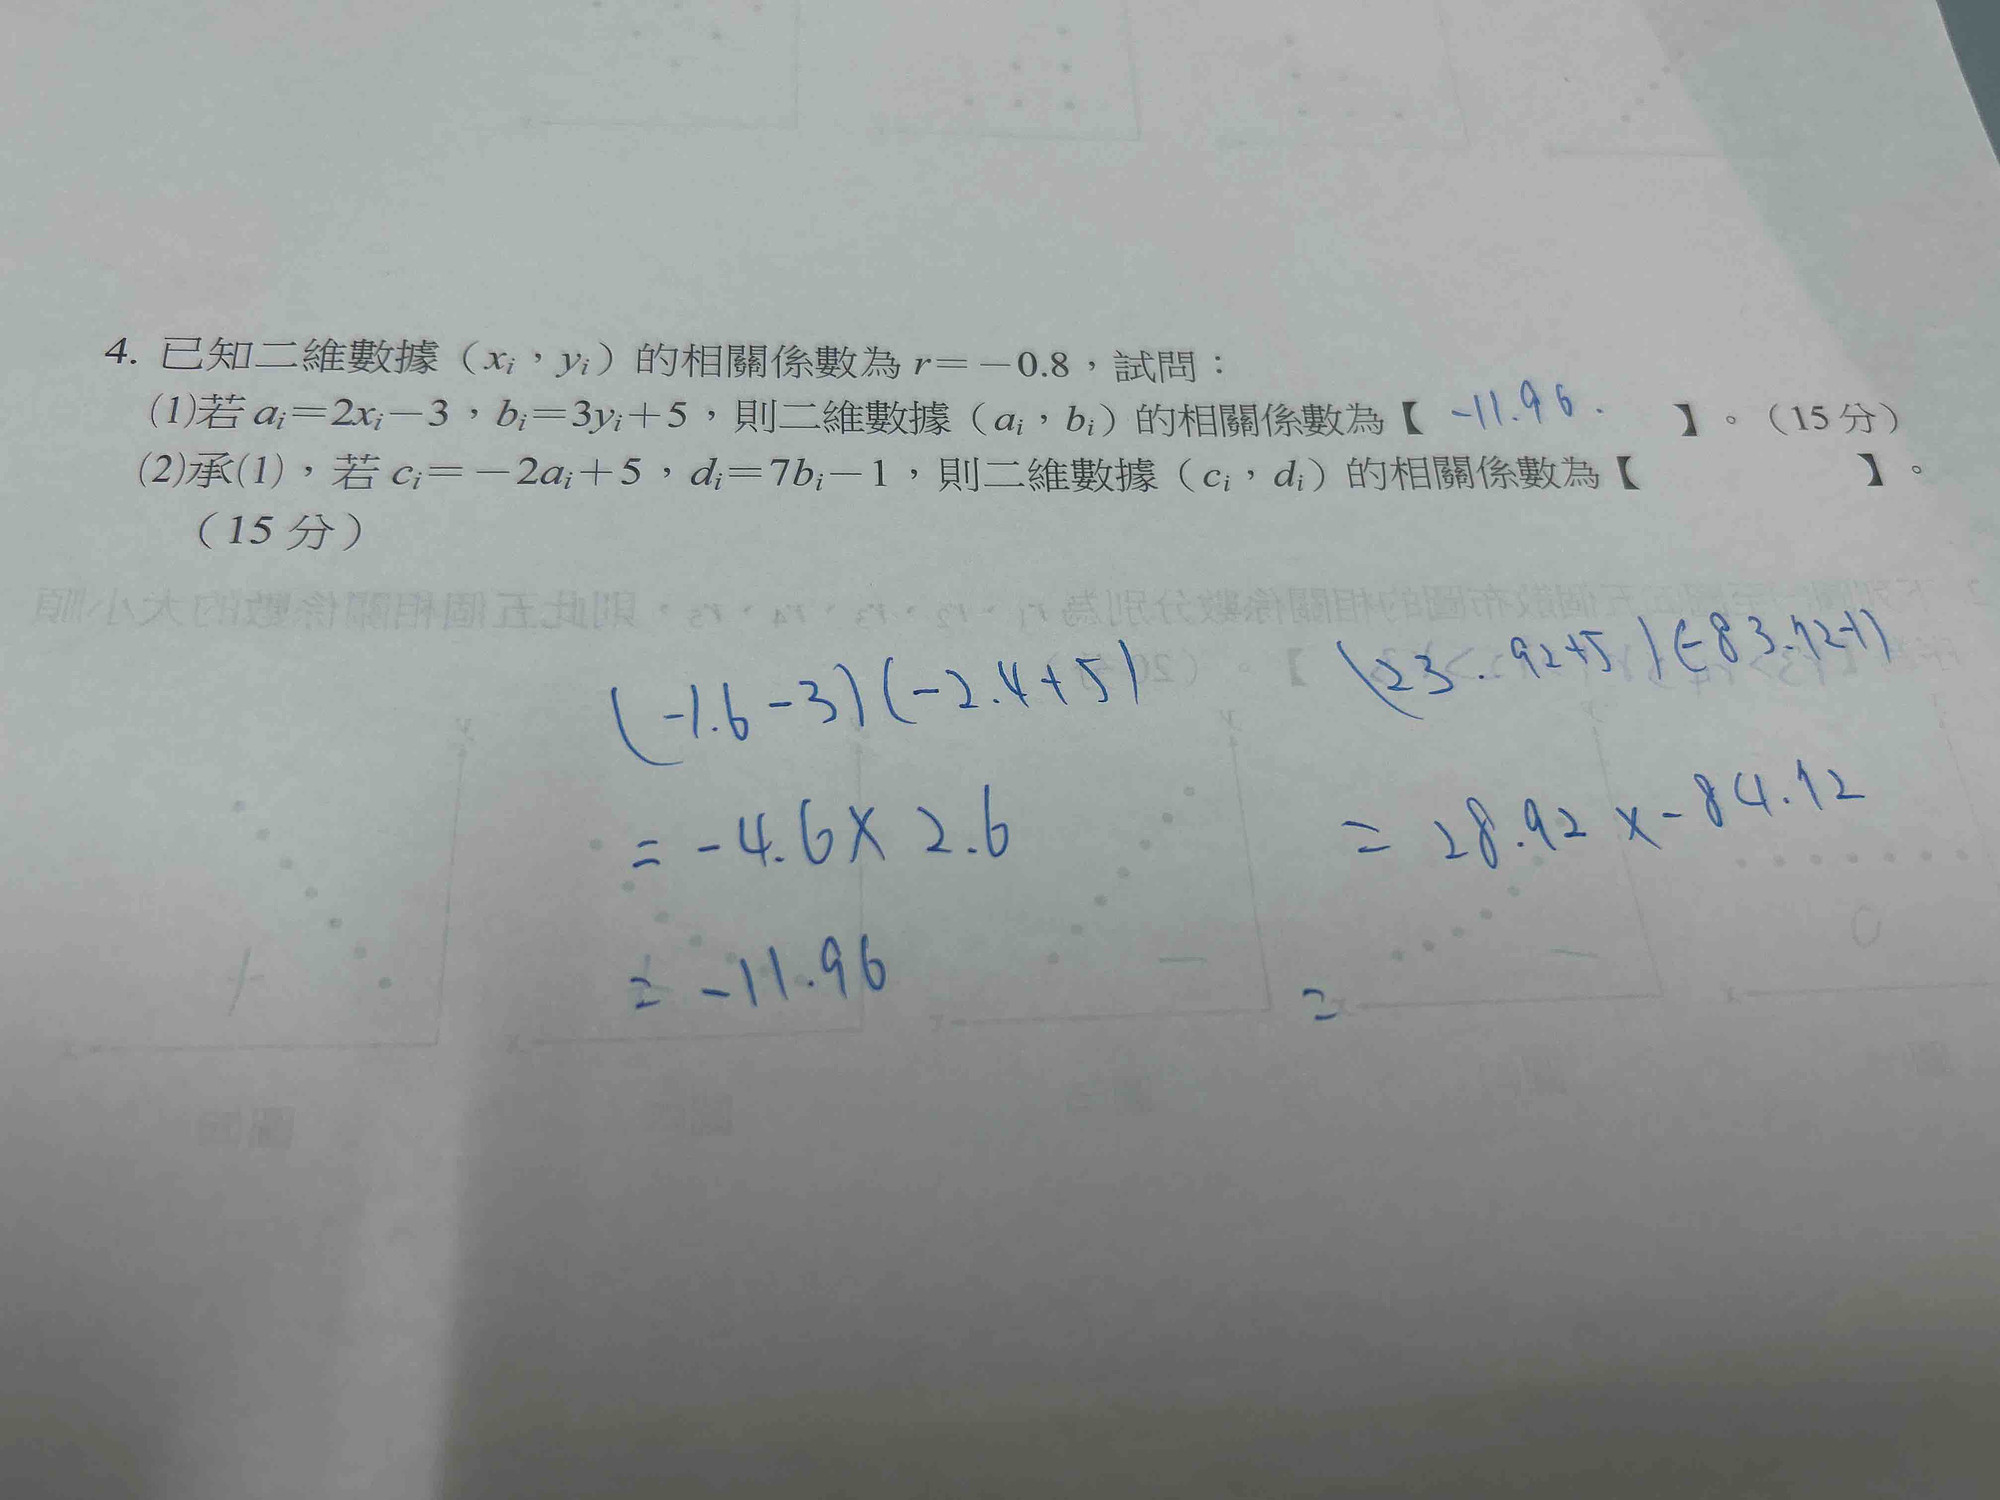 4. 已知二維數據（xᵢ，yᵢ）的相關係數為 r＝－0.8，試問：
(1)若 aᵢ＝2xᵢ－3，bᵢ＝3yᵢ＋5，則二維數據（aᵢ，bᵢ）的相關係數為【 -11.96. 】。（15 分）
(2)承(1)，若 cᵢ＝－2aᵢ＋5，dᵢ＝7bᵢ－1，則二維數據（cᵢ，dᵢ）的相關係數為【 】。
（15 分）
(-1.6-3)(-2.4+5)
= -4.6×2.6
= -11.96
(23.92+5)(-83.72-1)
= 28.92×-84.72
=